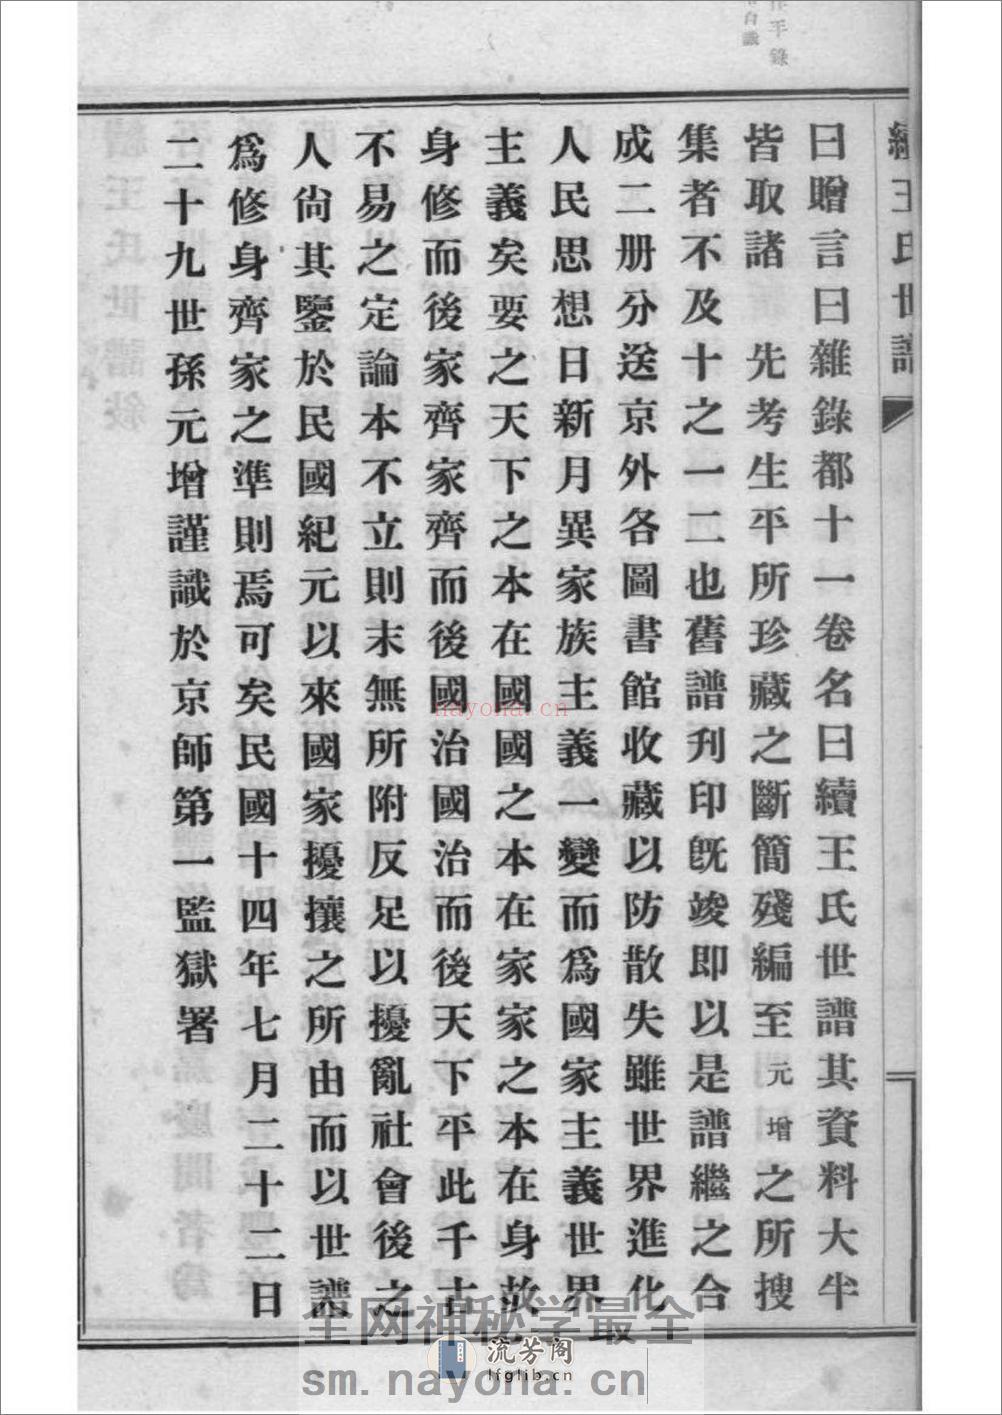 續王氏世譜
曰贈言曰雜錄都十一卷名曰續王氏世譜其資料大半
皆取諸　先考生平所珍藏之斷簡殘編至元增之所搜
集者不及十之一二也舊譜刋印旣竣即以是譜繼之合
成二册分送京外各圖書館收藏以防散失雖世界進化
人民思想日新月異家族主義一變而爲國家主義世界
主義矣要之天下之本在國國之本在家家之本在身故
身修而後家齊家齊而後國治國治而後天下平此千古
不易之定論本不立則末無所附反足以擾亂社會後之
人尙其鑒於民國紀元以來國家擾攘之所由而以世譜
爲修身齊家之準則焉可矣民國十四年七月二十二日
二十九世孫元增謹識於京師第一監獄署
nayona.cn
全网神秘学最全
流芳阁
lfglib.cn
sm.nayona.cn